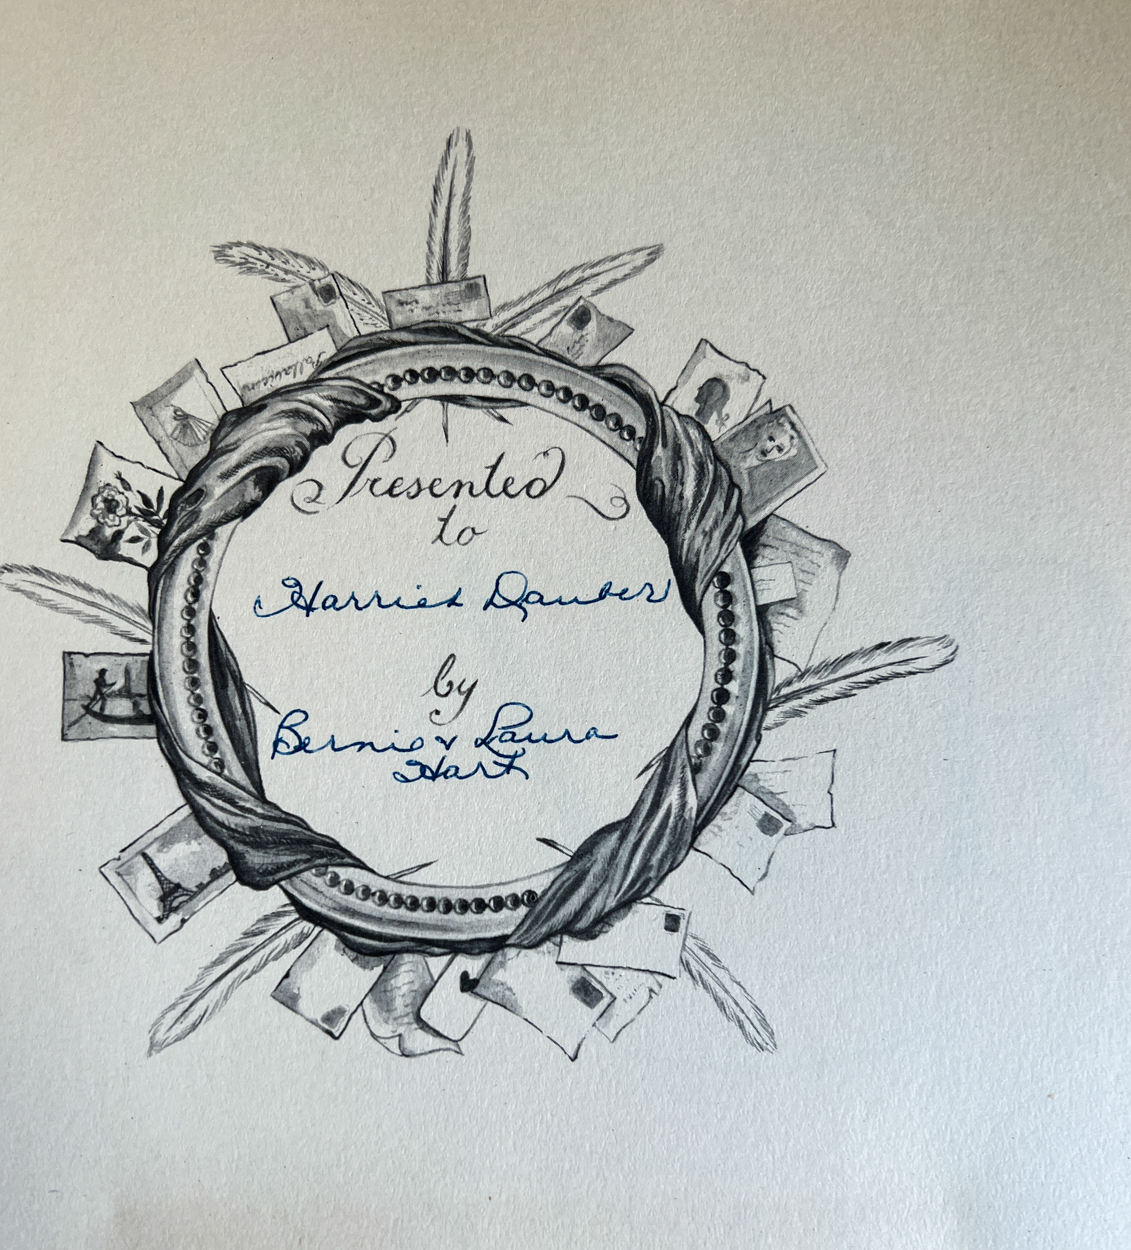 Presented
to
Harriet Dauber
by
Bernie & Laura
Hart